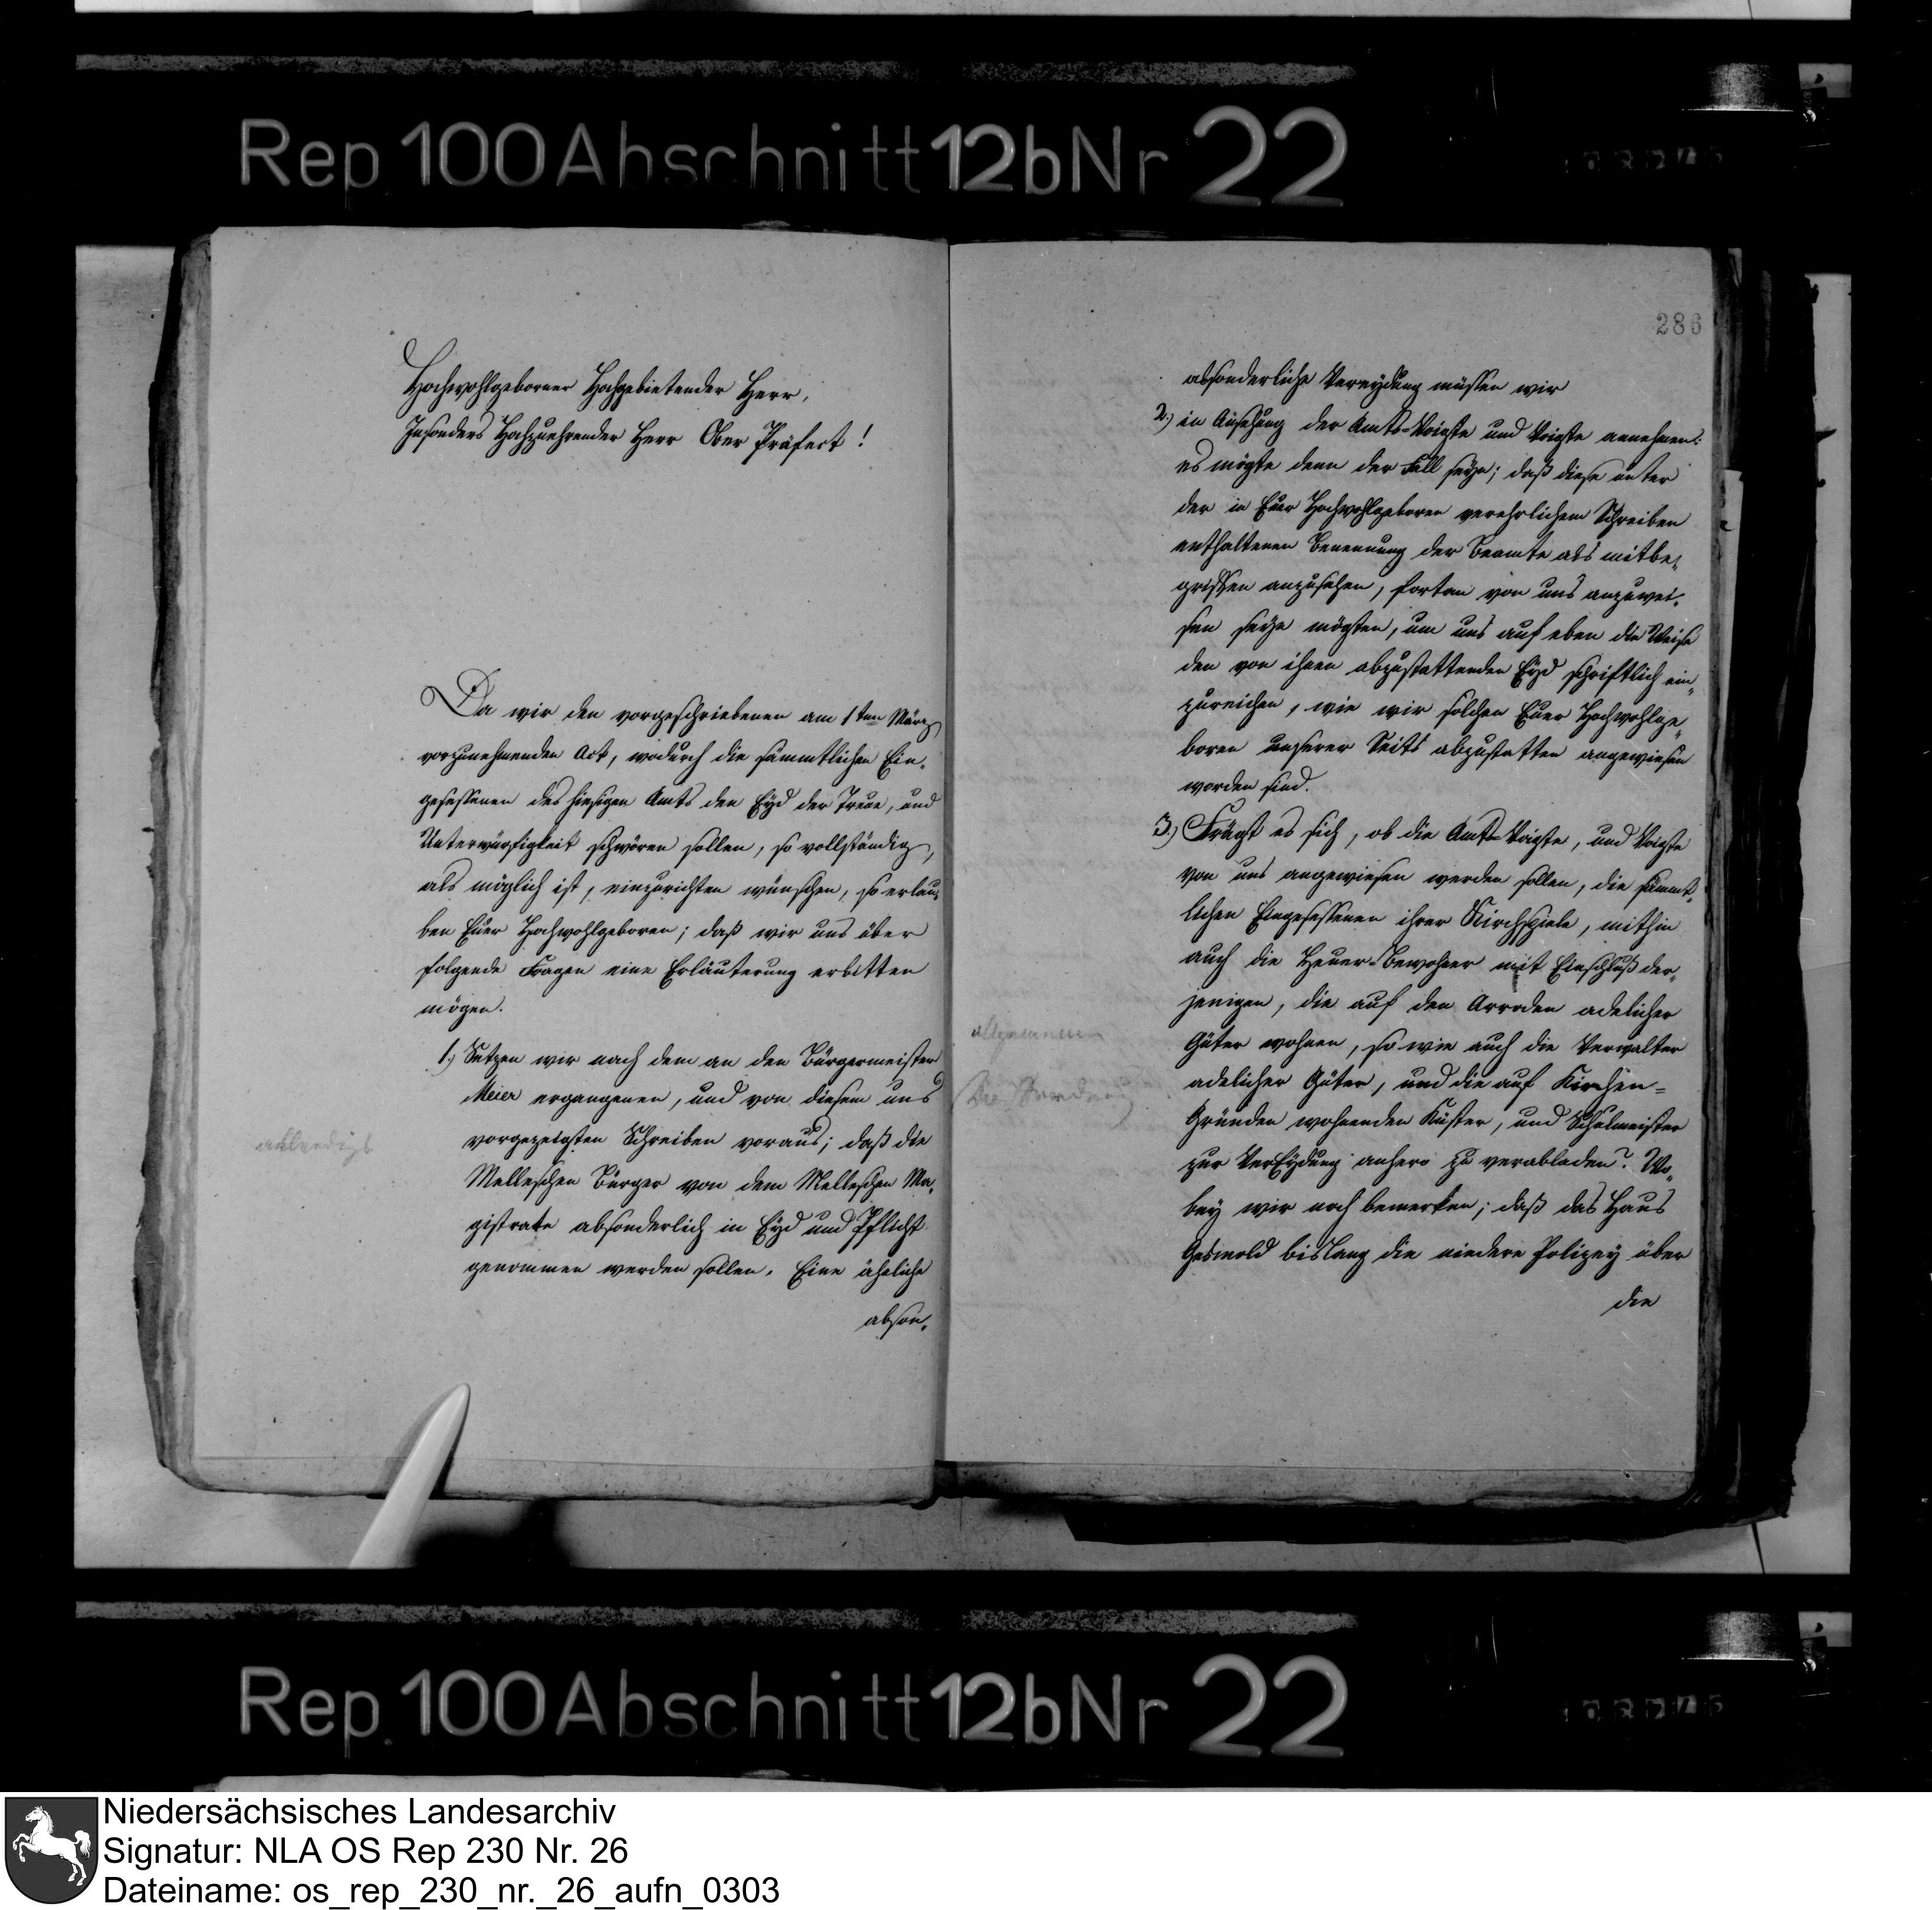 Rep 100 Abschnitt 12b Nr 22
Hochwohlgeborner Hochgebietender Herr,
Insonders Hochzuehrender Herr Ober Präfect!
Da wir den vorgeschriebenen am 1ten März
vorzunehmenden Act, wodurch die sämmtlichen Ein„
gesessenen des hiesigen Amts den Eyd der Treue, und
Unterwürfigkeit schwören sollen, so vollständig,
als möglich ist, einzurichten wünschen, so erlau„
ben Euer Hochwohlgeboren; daß wir uns über
folgende Fragen eine Erläuterung erbitten
mögen.
1.) Setzen wir nach dem an den Bürgermeister
Meier ergangenen, und von diesem uns
vorgezeigten Schreiben voraus; daß die
Melleschen Bürger von dem Melleschen Ma„
gistrate absonderlich in Eyd und Pflicht
genommen werden sollen. Eine ähnliche
abson„
286
absonderliche Vereydung müssen wir
2.) in Ansehung der Amts-Voigte und Voigte annehmen:
es mögte denn der Fall seyn; daß diese unter
der in Euer Hochwohlgeboren verehrlichem Schreiben
enthaltenen Benennung der Beamte als mitbe„
griffen anzusehen, fortan von uns anzuwei„
sen seyn mögten, um uns auf eben die Weise
den von ihnen abzustattenden Eyd schriftlich ein„
zureichen, wie wir solchen Euer Hochwohlge„
boren unserer Seits abzustatten angewiesen
worden sind.
3.) Frägt es sich, ob die Amts-Voigte, und Voigte
von uns angewiesen werden sollen, die sämmt„
lichen Eingesessenen ihrer Kirchspiele, mithin
auch die Heuer-Bewohner mit Einschluß der„
jenigen, die auf den Arroden adelicher
Güter wohnen, so wie auch die Verwalter
adelicher Güter, und die auf Kirchen=
Gründen wohnenden Küster, und Schulmeister
zur VerEydung anhero zu verabladen? Wo„
bey wir noch bemerken; daß das Haus
Gesmold bislang die niedere Polizey über
die
Rep 100 Abschnitt 12b Nr 22
Niedersächsisches Landesarchiv
Signatur: NLA OS Rep 230 Nr. 26
Dateiname: os_rep_230_nr._26_aufn_0303